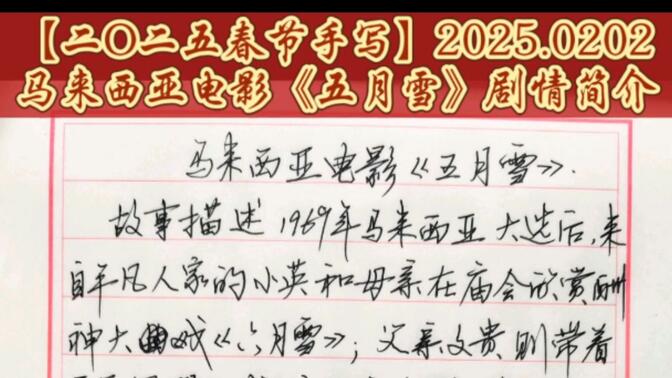 【二〇二五春节手写】2025.0202
马来西亚电影《五月雪》剧情简介
马来西亚电影《五月雪》.
故事描述1969年马来西亚大选后,来
自平凡人家的小英和母亲在庙会欣赏酬
神大戏《六月雪》;父亲文贵则带着